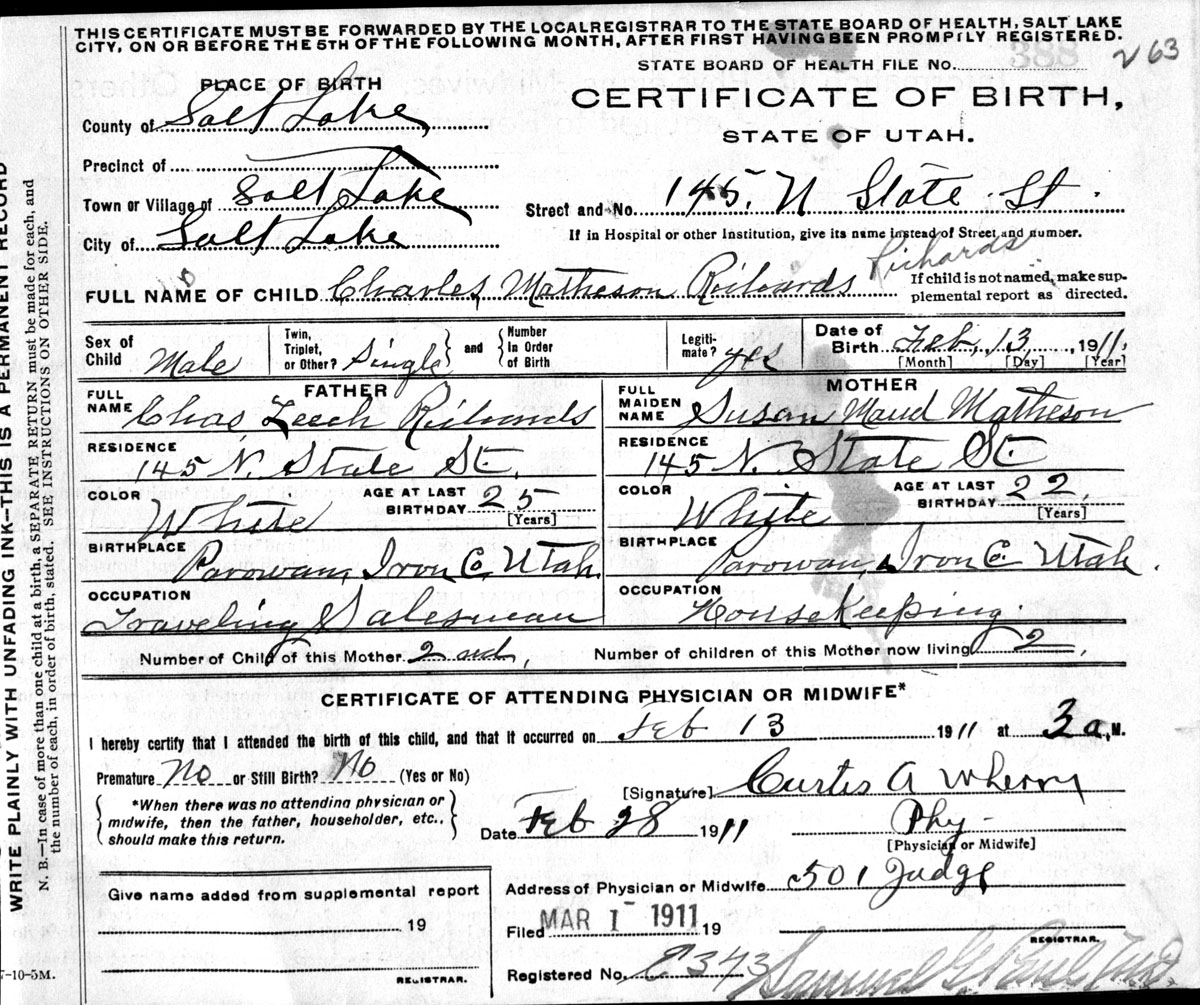 THIS CERTIFICATE MUST BE FORWARDED BY THE LOCAL REGISTRAR TO THE STATE BOARD OF HEALTH, SALT LAKE
CITY, ON OR BEFORE THE 5TH OF THE FOLLOWING MONTH, AFTER FIRST HAVING BEEN PROMPTLY REGISTERED.
STATE BOARD OF HEALTH FILE No. 388
263
PLACE OF BIRTH
CERTIFICATE OF BIRTH,
STATE OF UTAH.
County of Salt Lake
Precinct of
Town or Village of Salt Lake
Street and No. 145. N State St.
City of Salt Lake
If in Hospital or other Institution, give its name instead of Street and number.
Richards
FULL NAME OF CHILD Charles Matheson Richards
If child is not named, make sup-
plemental report as directed.
Sex of Child Male
Twin, Triplet, or Other? Single and Number In Order of Birth
Legiti-mate? yes
Date of Birth Feb, 13, 1911,
[Month] [Day] [Year]
FATHER
FULL NAME Chas Leech Richards
RESIDENCE 145 N. State St.
COLOR White AGE AT LAST BIRTHDAY 25 [Years]
BIRTHPLACE Parowan, Iron Co, Utah.
OCCUPATION Traveling Salesman
MOTHER
FULL MAIDEN NAME Susan Maud Matheson
RESIDENCE 145 N. State St
COLOR White AGE AT LAST BIRTHDAY 22, [Years]
BIRTHPLACE Parowan, Iron C. Utah.
OCCUPATION Housekeeping.
Number of Child of this Mother 2nd, Number of children of this Mother now living 2,
CERTIFICATE OF ATTENDING PHYSICIAN OR MIDWIFE*
I hereby certify that I attended the birth of this child, and that it occurred on Feb 13 1911 at 3 a, M.
Premature No or Still Birth? No (Yes or No)
*When there was no attending physician or
midwife, then the father, householder, etc.,
should make this return.
[Signature] Curtis A Wherry
Date Feb 28 1911 Phy-
[Physician or Midwife]
Give name added from supplemental report
19
REGISTRAR.
Address of Physician or Midwife 501 Judge
Filed MAR 1 1911 19
REGISTRAR.
Registered No. E343
7-10-5M.
WRITE PLAINLY WITH UNFADING INK—THIS IS A PERMANENT RECORD
N. B.—In case of more than one child at a birth, a SEPARATE RETURN must be made for each, and
the number of each, in order of birth, stated. SEE INSTRUCTIONS ON OTHER SIDE.